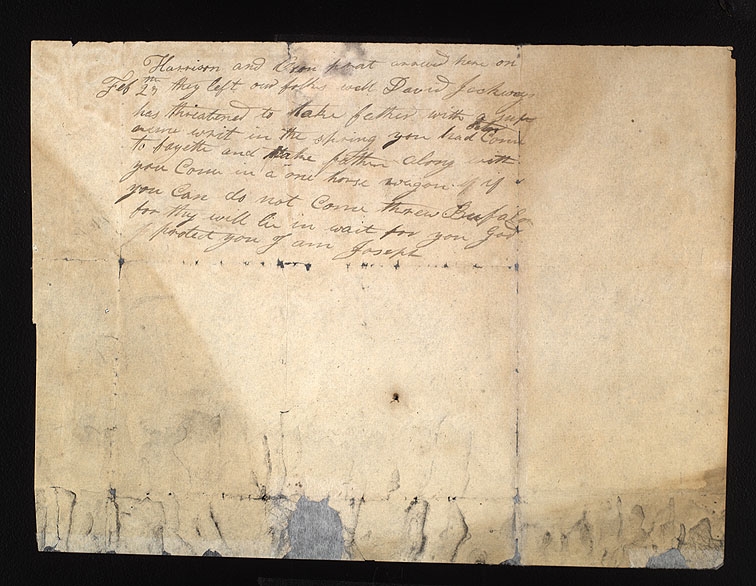 Harrison and Orson prat arrived here on
Feb 27th they left our folks well David Jackways
has threatened to take father with a supr
eme writ in the spring you had better Come
to fayette and take father along with
you Come in a one horse wagon if
you Can do not Come threw Bufalo
for they will lie in wait for you God
protect you I am Joseph